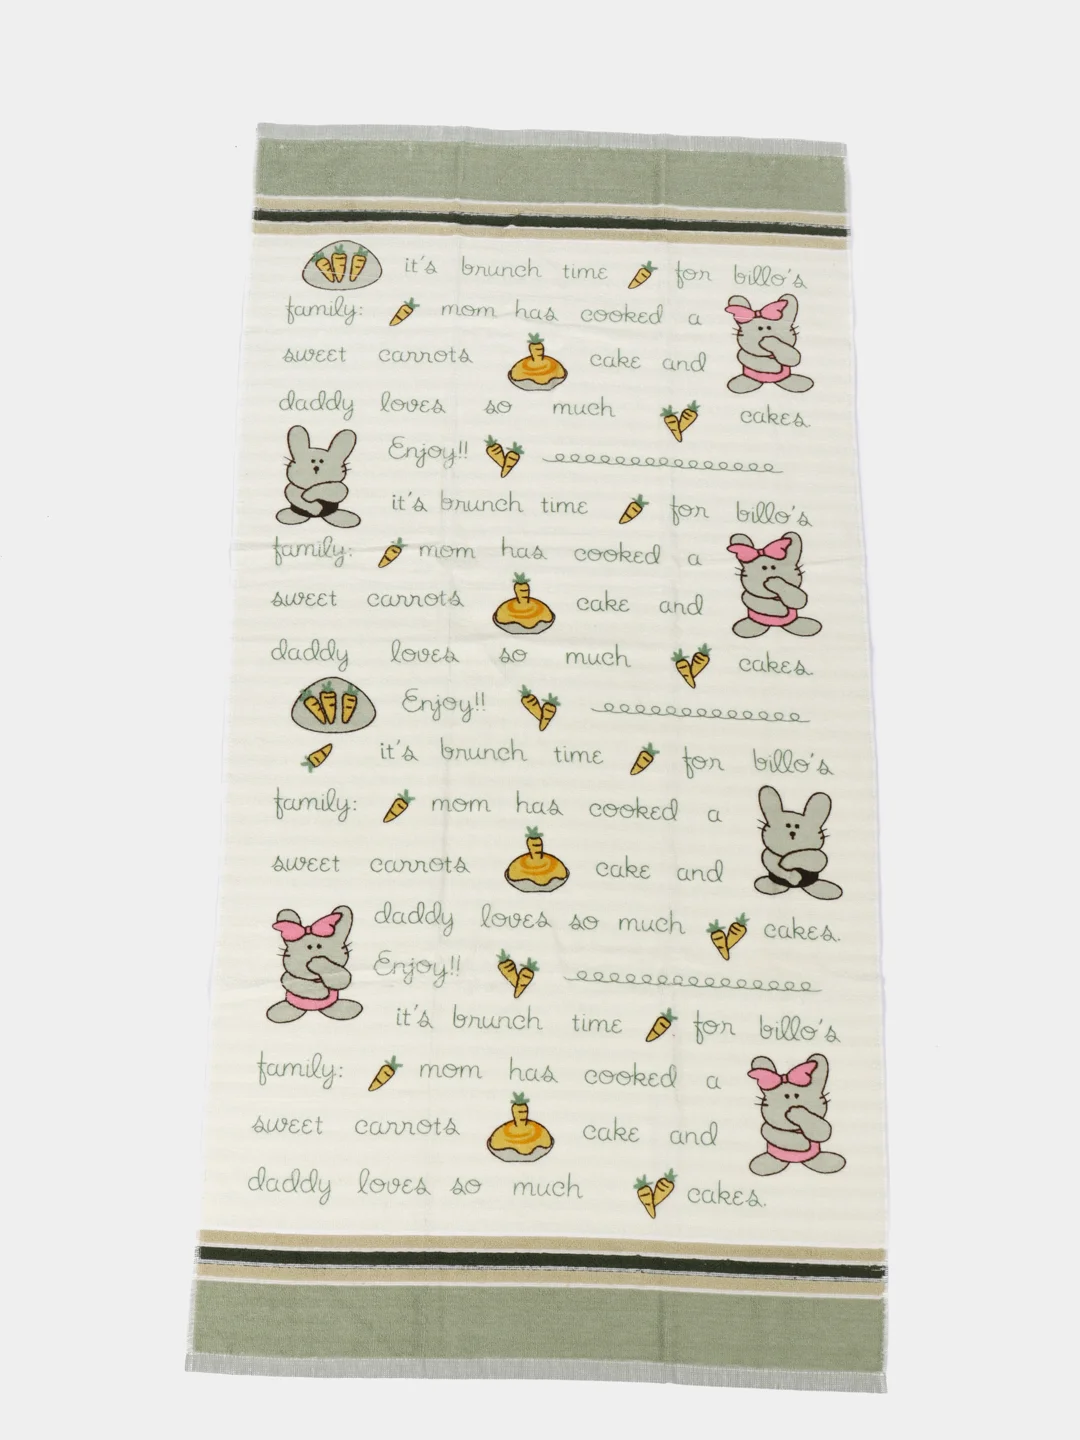 it's brunch time for billo's
family: mom has cooked a
sweet carrots cake and
daddy loves so much cakes.
Enjoy!!
it's brunch time for billo's
family: mom has cooked a
sweet carrots cake and
daddy loves so much cakes.
Enjoy!!
it's brunch time for billo's
family: mom has cooked a
sweet carrots cake and
daddy loves so much cakes.
Enjoy!!
it's brunch time for billo's
family: mom has cooked a
sweet carrots cake and
daddy loves so much cakes.